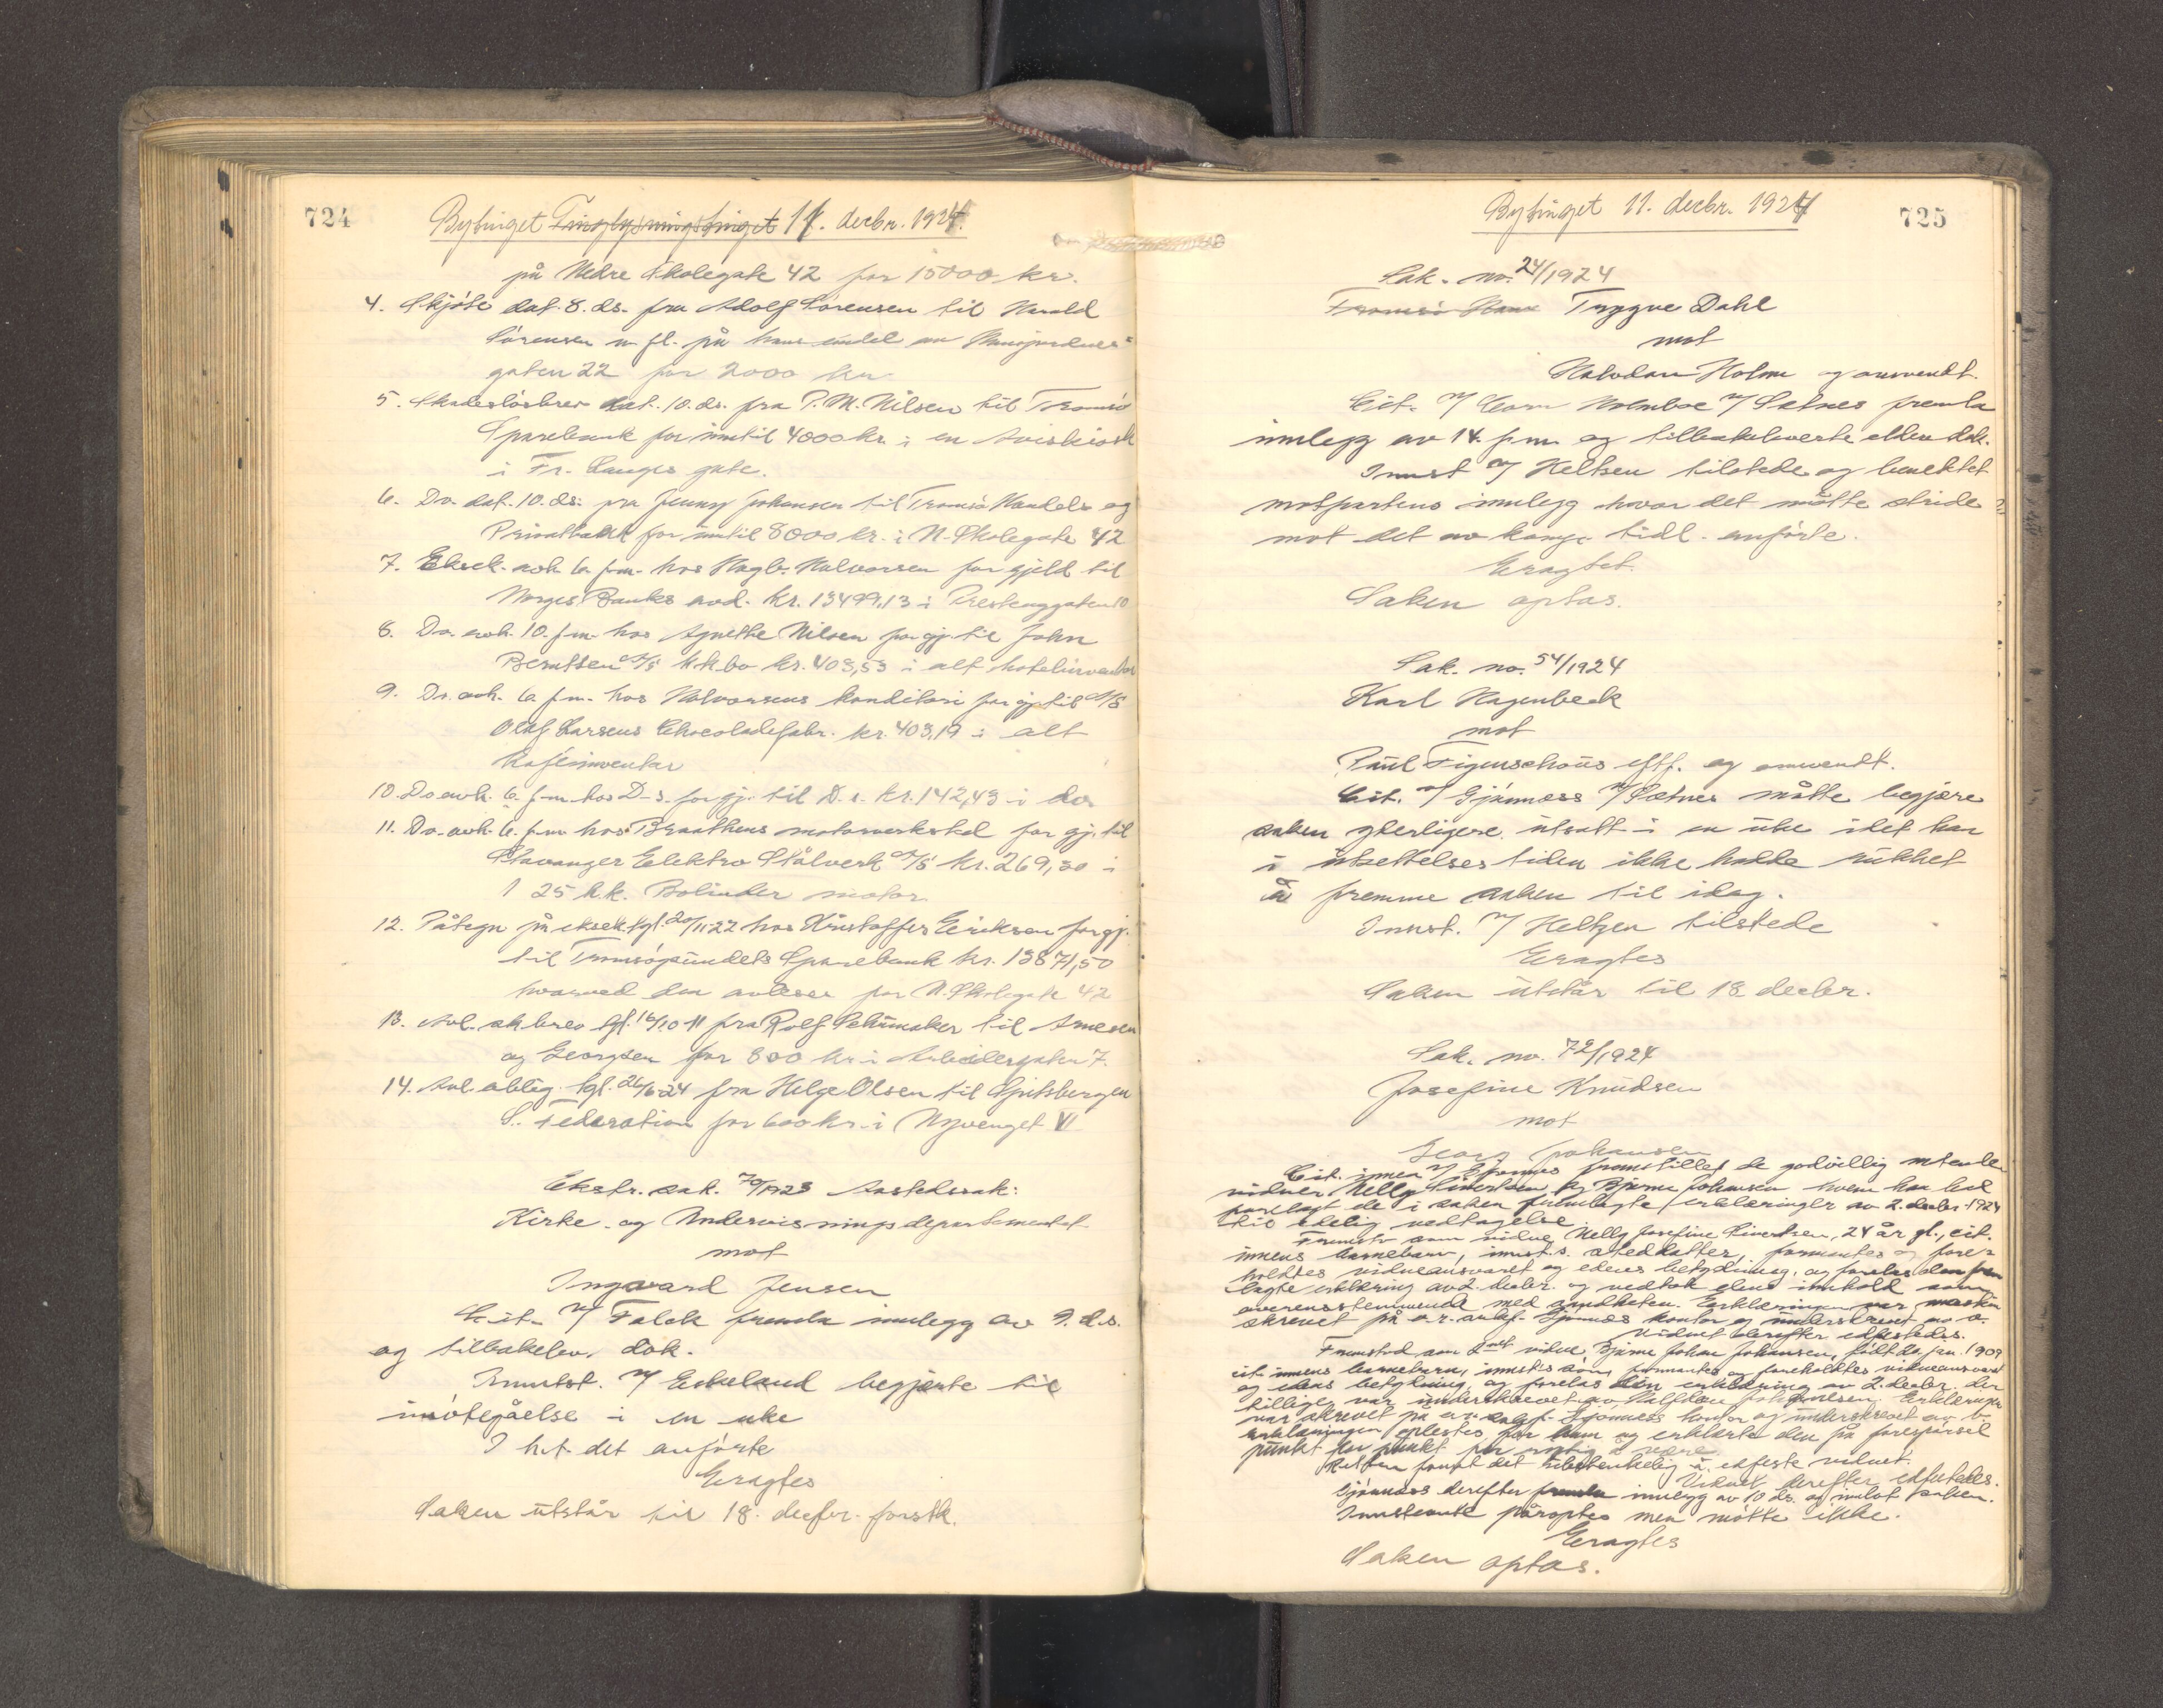 724
Bytinget Tinglysningstinget 11. decbr. 1924.
på Nedre Skolegate 42 for 15000 kr.
4. Skjøte dat. 8. ds. fra Adolf Sørensen til Harald
Sørensen m fl. på hans andel av
gaten 22 for 2000 kr
5. Skadesløsbrev dat. 10. ds. fra P. M. Nilsen til Tromsø
Sparebank for inntil 4000 kr. i en Aviskiosk
i Fr. Langes gate.
6. Do. dat. 10. ds. fra Jenny Johansen til Tromsø Handels og
Privatbank for inntil 8000 kr. i N. Skolegate 42
7. Eksek. avh. 6. f.m. hos Hagb. Halvorsen for gjeld til
Norges Banks avd. kr. 13499,13 i Prestenggaten 10
8. Do. avh. 10. f.m. hos Agnethe Nilsen for gj. til John
Berntsen A/S k.k.bo kr. 403,53 i alt hotelinventar
9. Do. avh. 6. f.m. hos Halvorsens konditori for gj. til A/S
Olaf Larsens Chocoladefabr. kr. 403,19 i alt
kaféinventar
10. Do avh. 6. f.m. hos D-s. for gj. til D. s. kr. 142,43 i do
11. Do. avh. 6. f.m. hos Braathens motorverksted for gj. til
Stavanger Elektro Stålverk A/S kr. 269,30 i
1 25 h.k. Bolinder motor
12. Påtegn på eksek. tgl. 20/11-22 hos Kristoffer Eriksen for gj.
til Tromsøsundets Sparebank kr. 13871,50
hvorved den avlæses for N. Skolegate 42
13. Avl. sk.brev tgl. 16/10 11 fra Rolf Schumaker til Arnesen
og Georgsen for 800 kr. i Arbeidergaten 7.
14. Avl. oblig. tgl. 26/6-24 fra Helge Olsen til Spitsbergen
S. Federation for 600 kr. i Nyvenget VI
Ekstr. sak. 70/1923 Aastedssak:
Kirke- og Undervisningsdepartementet
mot
Ingvard Jensen
Cit. v/ Falck fremla innlegg av 9. d.s.
og tilbakelev. dok.
Innstst. v/ Eskeland begjærte til
imøtegåelse i en uke
I h.t. det anførte
Eragtes
Saken utstår til 18. decbr. førstk.
Bytinget 11. decbr. 1924
725
Sak. no. 24/1924
Tromsø Trygve Dahl
mot
Halvdan Holm og omvendt.
Cit. v/ Conr Holmboe v/ Sætnes fremla
innlegg av 14. f.m. og tilbakeleverte dok.
Innst v/ Heltzen tilstede og benektet
motpartens innlegg hvor det måtte stride
mot det av ham tidl. anførte.
Eragtet.
Saken optas.
Sak. no. 54/1924
Karl Hagenbeck
mot
Paul Figenschous eftf. og omvendt.
Cit. v/ Gjønnæss v/ Sætnes måtte begjære
saken yterligere utsatt i en uke idet han
i utsettelsestiden ikke hadde rukket
å fremme saken til idag.
Innst. v/ Heltzen tilstede
Eragtes
Saken utstår til 18 decbr.
Sak. no. 72/1924
Josefine Knudsen
mot
Georg Johansen
Cit. innen v/ Gjønnes fremstillet de godvillig møtende
vidner Nelly Sivertsen og Bjarne Johansen hvem han bad
forelagt de i saken fremlagte erklæringer av 2. decbr. 1924
til edelig vedtagelse.
Fremstr som vidne Nelly Josefine Sivertsen, 24 år gl., cit.
innens barnebarn, innst.s. steddatter, formantes og fore-
holdtes vidneansvaret og edens betydning, og forelas den frem
lagte erklæring av 2. decbr. og vedtok dens innhold som
overensstemmende med sandheten. Erklæringen var maskin
skrevet på o.r.sakf. Gjønnes kontor og underskrevet av a.
Vidnet derefter edfæstedes.
Fremstod som 2net vidne Bjarne Johan Johansen, født jan. 1909
cit. innens barnebarn, innst.s søn, formantes og foreholdtes vidneansvaret
og edens betydning og forelas den erklæring av 2. decbr. der
tillige var underskrevet av Halfdan Johannesen. Erklæringen
var skrevet på o.r. sakf. Gjønnæss kontor og underskrevet av b.
erklæringen oplestes for ham og erklærte den på forespørsel
punkt for punkt for rigtig å være.
Retten fant det ubetenkelig å edfeste vidnet.
Vidnet derefter edfæstedes.
Gjønnæss derefter fremla innlegg av 10 ds. og innlot saken.
Innstevnte påroptes men møtte ikke.
Eragtes
Saken optas.